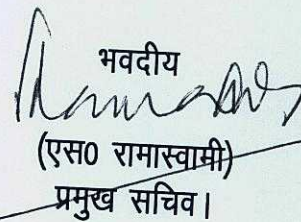 भवदीय
(एस0 रामास्वामी)
प्रमुख सचिव।